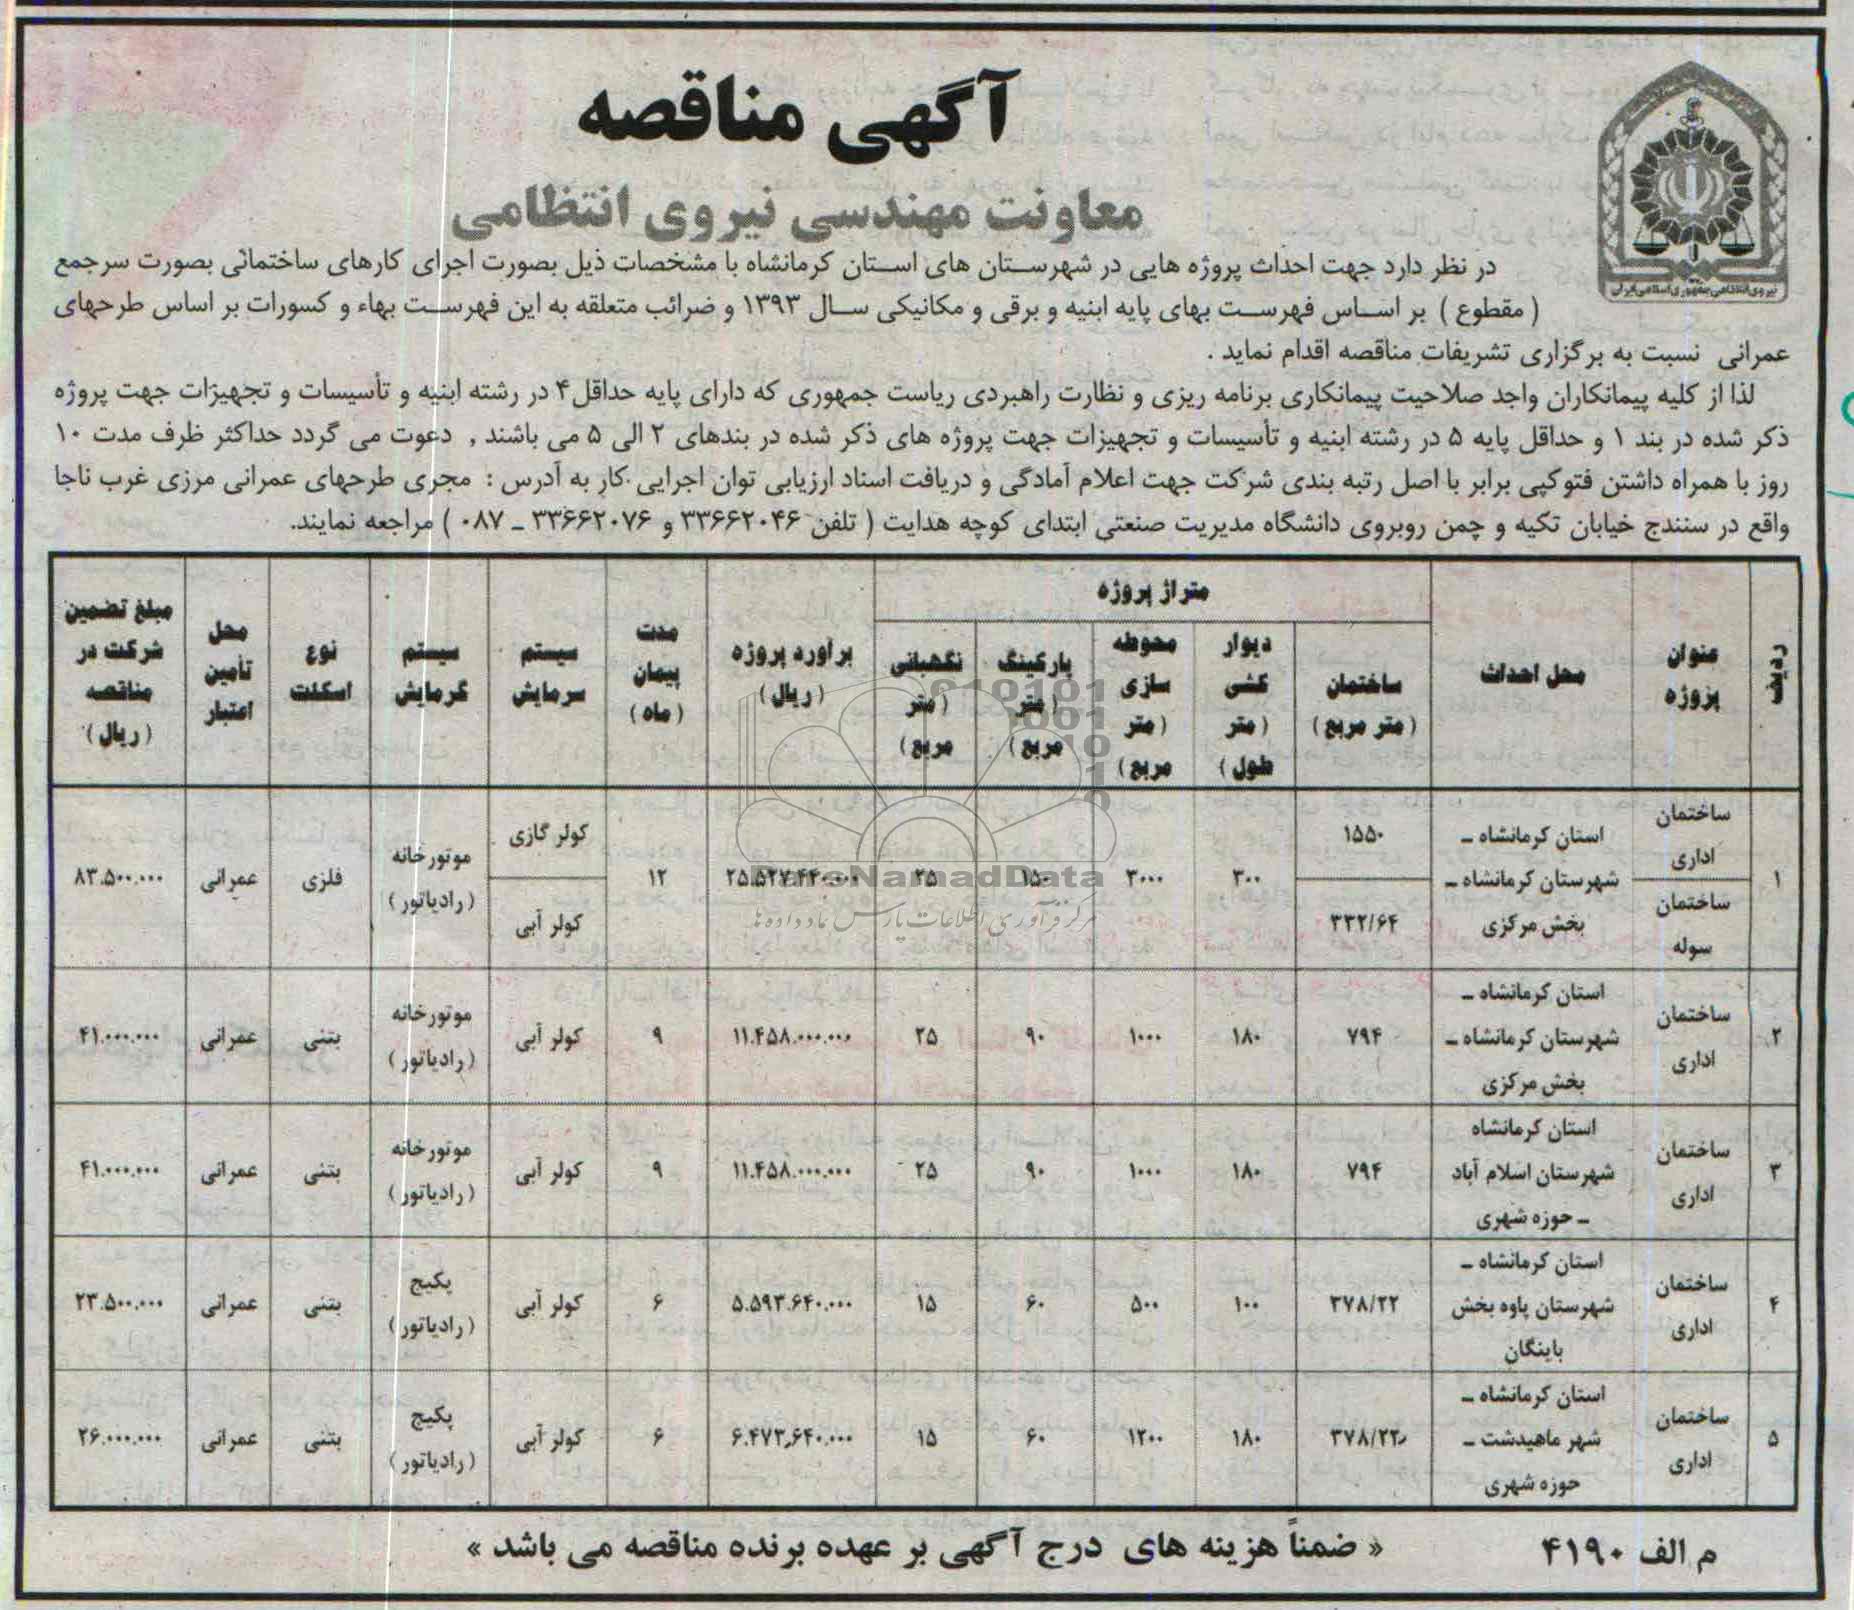 آگهی مناقصه
معاونت مهندسی نیروی انتظامی
نیروی انتظامی جمهوری اسلامی ایران
در نظر دارد جهت احداث پروژه هایی در شهرستان های استان کرمانشاه با مشخصات ذیل بصورت اجرای کارهای ساختمانی بصورت سرجمع
( مقطوع ) بر اساس فهرست بهای پایه ابنیه و برقی و مکانیکی سال ۱۳۹۳ و ضرائب متعلقه به این فهرست بهاء و کسورات بر اساس طرحهای
عمرانی نسبت به برگزاری تشریفات مناقصه اقدام نماید .
لذا از کلیه پیمانکاران واجد صلاحیت پیمانکاری برنامه ریزی و نظارت راهبردی ریاست جمهوری که دارای پایه حداقل۴ در رشته ابنیه و تأسیسات و تجهیزات جهت پروژه
ذکر شده در بند ۱ و حداقل پایه ۵ در رشته ابنیه و تأسیسات و تجهیزات جهت پروژه های ذکر شده در بندهای ۲ الی ۵ می باشند , دعوت می گردد حداکثر ظرف مدت ۱۰
روز با همراه داشتن فتوکپی برابر با اصل رتبه بندی شرکت جهت اعلام آمادگی و دریافت اسناد ارزیابی توان اجرایی کار به آدرس : مجری طرحهای عمرانی مرزی غرب ناجا
واقع در سنندج خیابان تکیه و چمن روبروی دانشگاه مدیریت صنعتی ابتدای کوچه هدایت ( تلفن ۳۳۶۶۲۰۴۶ و ۳۳۶۶۲۰۷۶ ـ ۰۸۷ ) مراجعه نمایند.
ردیف
عنوان پروژه
محل احداث
متراژ پروژه
ساختمان ( متر مربع )
دیوار کشی ( متر طول )
محوطه سازی ( متر مربع )
پارکینگ ( متر مربع )
نگهبانی ( متر مربع )
برآورد پروژه ( ریال )
مدت پیمان ( ماه )
سیستم سرمایش
سیستم گرمایش
نوع اسکلت
محل تأمین اعتبار
مبلغ تضمین شرکت در مناقصه ( ریال )
۱
ساختمان اداری
ساختمان سوله
استان کرمانشاه ـ
شهرستان کرمانشاه ـ
بخش مرکزی
۱۵۵۰
۳۳۲/۶۴
۳۰۰
۳۰۰۰
۱۵۰
۲۵
۲۵.۵۲۷.۴۴۰.۰۰۰
۱۲
کولر گازی
کولر آبی
موتورخانه ( رادیاتور )
فلزی
عمرانی
۸۳.۵۰۰.۰۰۰
۲
ساختمان اداری
استان کرمانشاه ـ
شهرستان کرمانشاه ـ
بخش مرکزی
۷۹۴
۱۸۰
۱۰۰۰
۹۰
۲۵
۱۱.۴۵۸.۰۰۰.۰۰۰
۹
کولر آبی
موتورخانه ( رادیاتور )
بتنی
عمرانی
۴۱.۰۰۰.۰۰۰
۳
ساختمان اداری
استان کرمانشاه
شهرستان اسلام آباد
ـ حوزه شهری
۷۹۴
۱۸۰
۱۰۰۰
۹۰
۲۵
۱۱.۴۵۸.۰۰۰.۰۰۰
۹
کولر آبی
موتورخانه ( رادیاتور )
بتنی
عمرانی
۴۱.۰۰۰.۰۰۰
۴
ساختمان اداری
استان کرمانشاه ـ
شهرستان پاوه بخش
باینگان
۳۷۸/۲۲
۱۰۰
۵۰۰
۶۰
۱۵
۵.۵۹۳.۶۴۰.۰۰۰
۶
کولر آبی
پکیج ( رادیاتور )
بتنی
عمرانی
۲۳.۵۰۰.۰۰۰
۵
ساختمان اداری
استان کرمانشاه ـ
شهر ماهیدشت ـ
حوزه شهری
۳۷۸/۲۲
۱۸۰
۱۲۰۰
۶۰
۱۵
۶.۴۷۳.۶۴۰.۰۰۰
۶
کولر آبی
پکیج ( رادیاتور )
بتنی
عمرانی
۲۶.۰۰۰.۰۰۰
ParsNamadData
مرکز فرآوری اطلاعات پارس نماد داده ها
م الف ۴۱۹۰
« ضمناً هزینه های درج آگهی بر عهده برنده مناقصه می باشد »